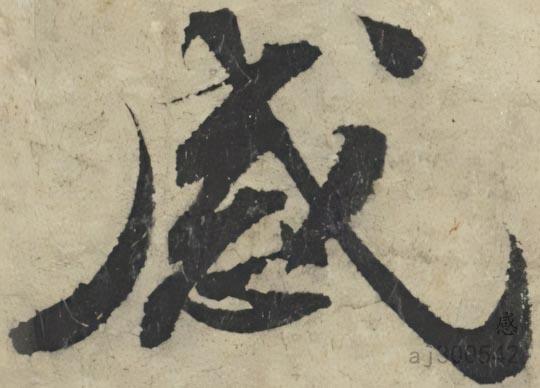 感
感
aj300542